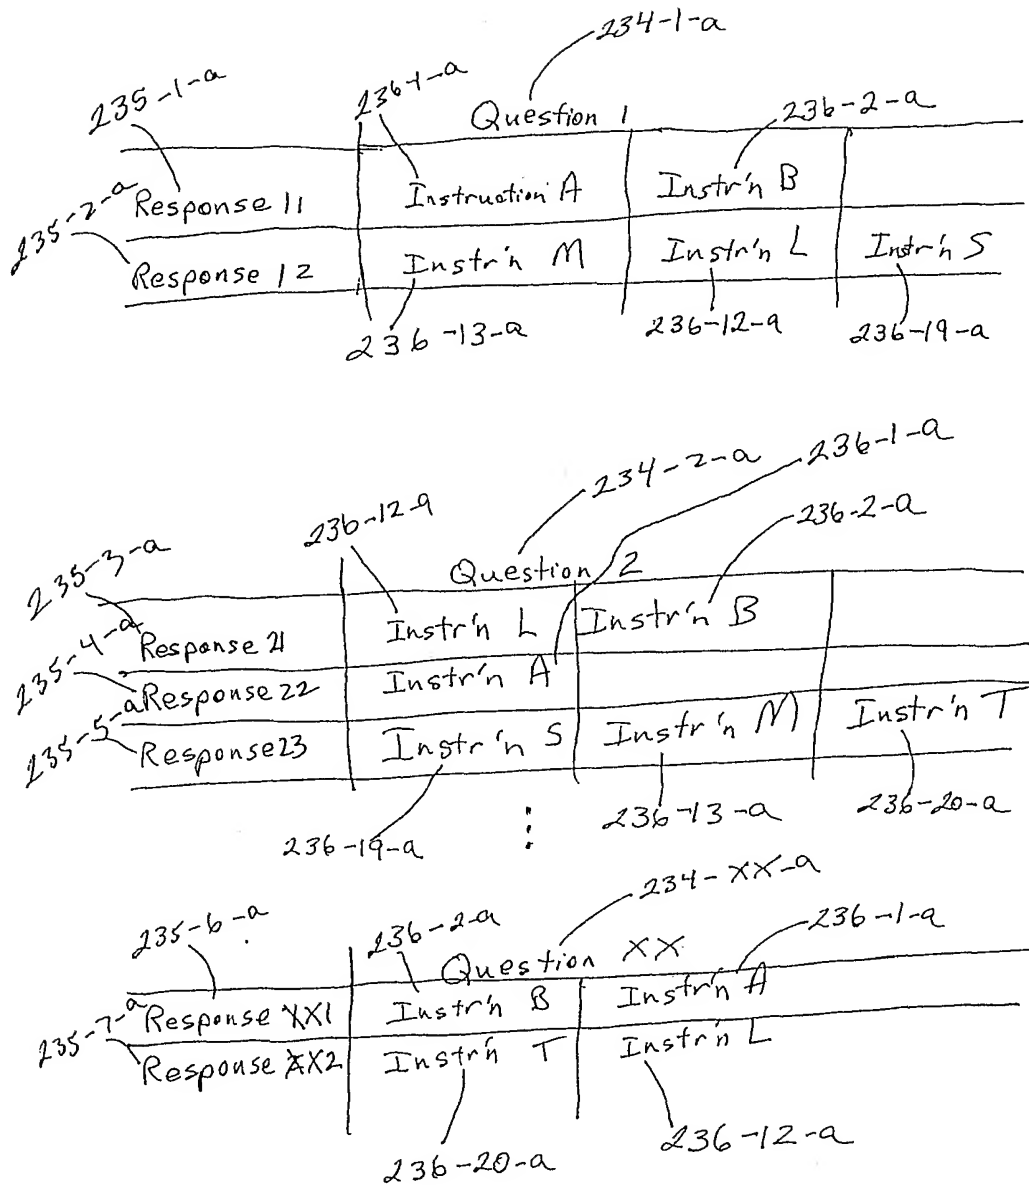 234-1-a
235-1-a 236-1-a 236-2-a
Question 1
235-2-a Response 11 Instruction A Instr'n B
Response 12 Instr'n M Instr'n L Instr'n S
236-13-a 236-12-a 236-19-a
234-2-a 236-1-a
236-12-a 236-2-a
235-3-a Question 2
235-4-a Response 21 Instr'n L Instr'n B
Response 22 Instr'n A
235-5-a Response 23 Instr'n S Instr'n M Instr'n T
236-19-a 236-13-a 236-20-a
234-XX-a
235-6-a 236-2-a 236-1-a
Question XX
235-7-a Response XX1 Instr'n B Instr'n A
Response XX2 Instr'n T Instr'n L
236-20-a 236-12-a